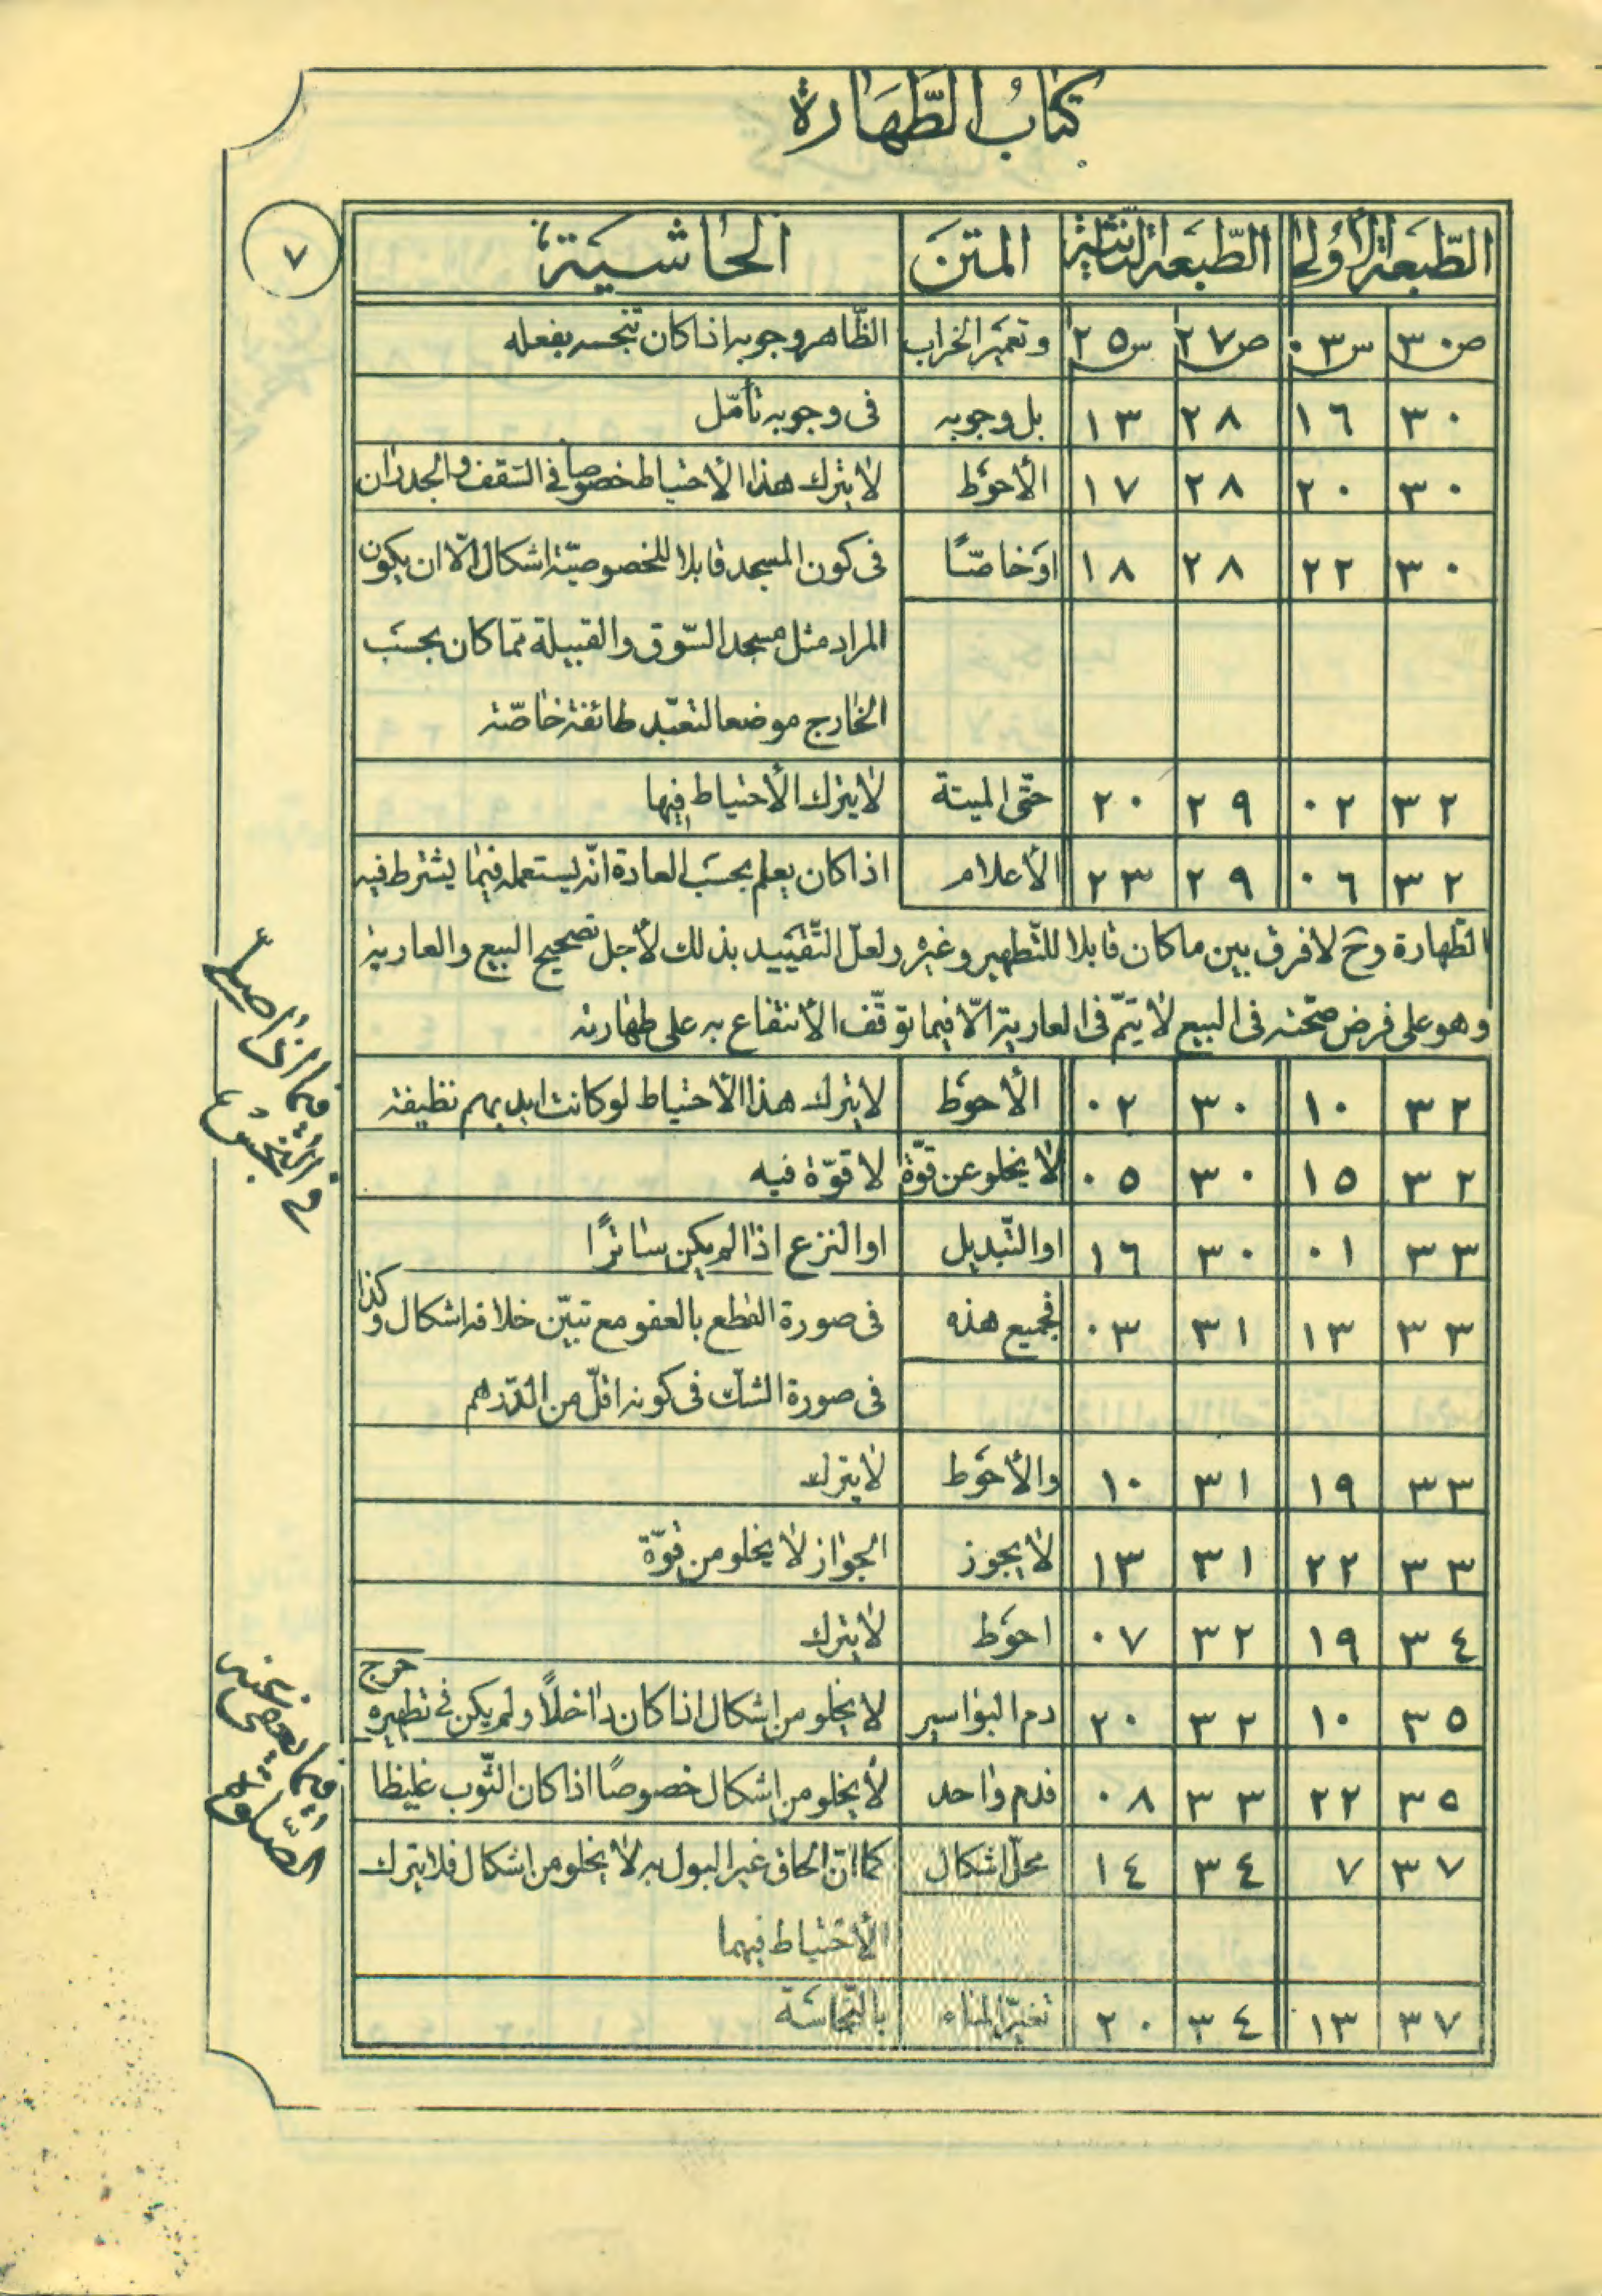 كتاب الطّهارة
٧
الطّبعة الأولى الطّبعة الثّانية المتن الحاشية
ص٣٠ س٠٣ ص٢٧ س٢٥ وتعمير الخراب الظّاهر وجوبه اذا كان تنجسه بفعله
٣٠ ١٦ ٢٨ ١٣ بل وجوبه فى وجوبه تأمّل
٣٠ ٢٠ ٢٨ ١٧ الأحوط لا يترك هذا الاحتياط خصوصاً فى السّقف والجدران
٣٠ ٢٢ ٢٨ ١٨ او خاصّاً فى كون المسجد قابلا للخصوصيّة اشكال الّا ان يكون
المراد مثل مسجد السّوق والقبيلة ممّا كان بحسب
الخارج موضعا لتعبّد طائفة خاصّة
٣٢ ٠٢ ٢٩ ٢٠ حتّى الميتة لا يترك الأحتياط فيها
٣٢ ٠٦ ٢٩ ٢٣ الأعلام اذا كان يعلم بحسب العادة انّه يستعمله فيما يشترط فيه
الطّهارة وح لا فرق بين ما كان قابلا للتّطهير وغيره ولعلّ التّقييد بذلك لأجل تصحيح البيع والعارية
وهو على فرض صحّته فى البيع لا يتمّ فى العارية الّا فيما توقّف الأنتفاع به على طهارته
٣٢ ١٠ ٣٠ ٠٢ الأحوط لا يترك هذا الأحتياط لو كانت ايديهم نظيفة
٣٢ ١٥ ٣٠ ٠٥ لا يخلو عن قوّة لا قوّة فيه
٣٣ ٠١ ٣٠ ١٦ او التّبديل او النزع اذا لم يكن ساترًا
٣٣ ١٣ ٣١ ٠٣ فجميع هذه فى صورة القطع بالعفو مع تبيّن خلافه اشكال وكذا
فى صورة الشك فى كونه اقلّ من الدّرهم
٣٣ ١٩ ٣١ ١٠ والأحوط لا يترك
٣٣ ٢٢ ٣١ ١٣ لا يجوز الجواز لا يخلو من قوّة
٣٤ ١٩ ٣٢ ٠٧ احوط لا يترك
٣٥ ١٠ ٣٢ ٢٠ دم البواسير لا يخلو من اشكال اذا كان داخلاً ولم يكن فى تطهيره حرج
٣٥ ٢٢ ٣٣ ٠٨ فدم واحد لا يخلو من اشكال خصوصًا اذا كان الثّوب غليظا
٣٧ ٧ ٣٤ ١٤ محلّ اشكال كما انّ الحاق غير البول به لا يخلو من اشكال فلا يترك
الأحتياط فيهما
٣٧ ١٣ ٣٤ ٢٠ تغيّر الماء بالنّجاسة
فيما يعفى عنه
فى الصّلوة